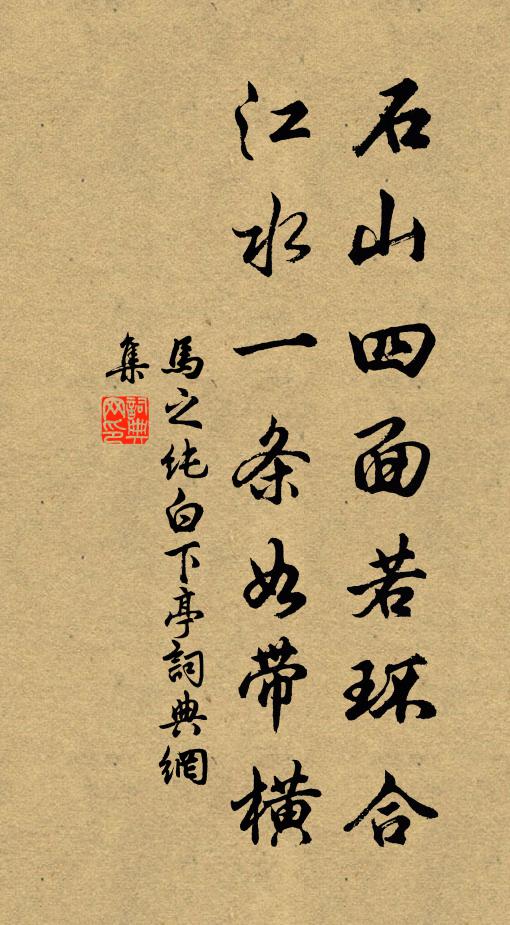 石山四面若环合
江水一条如带横
馬之纯白下亭詞典網
集
詞典网印